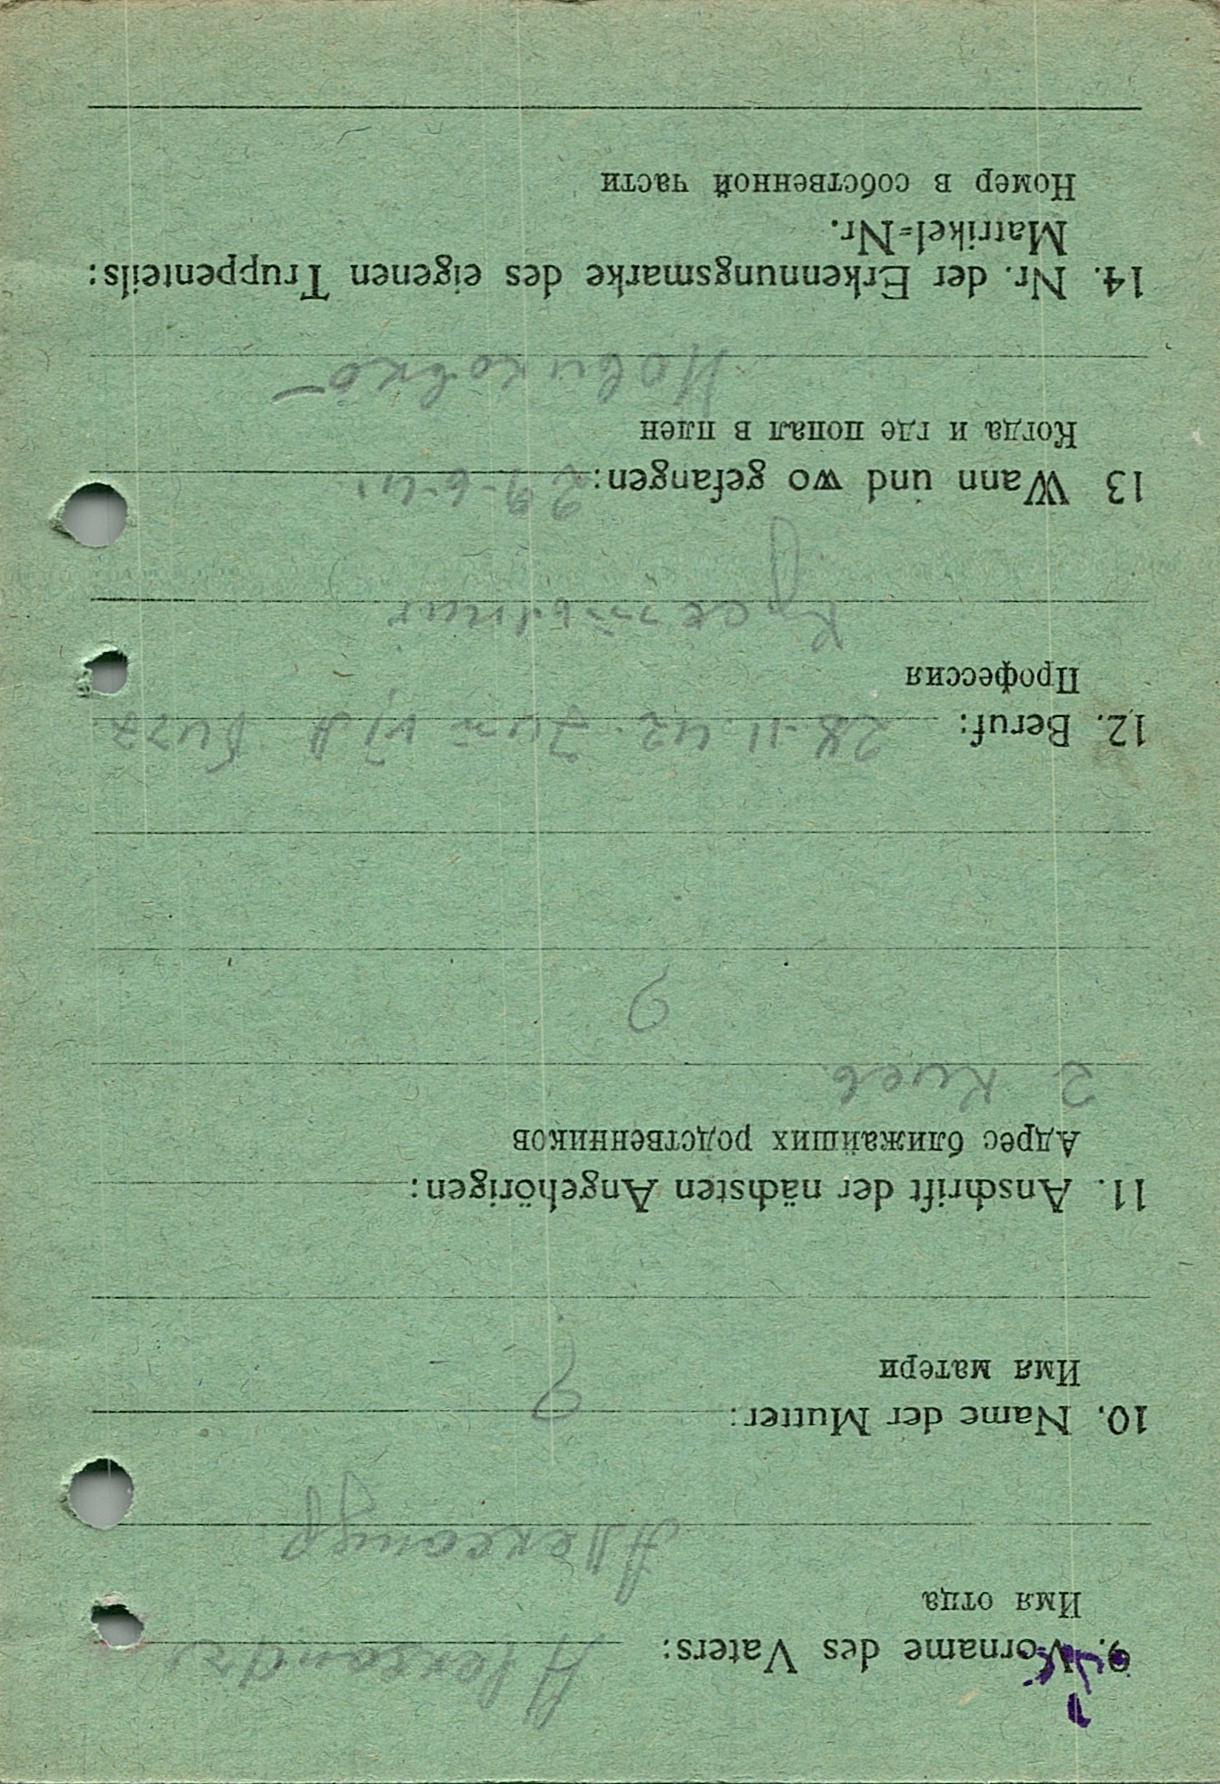 9. Vorname des Vaters: Alexander
Имя отца
Александр
10. Name der Mutter: ?
Имя матери
11. Anschrift der nächsten Angehörigen:
Адрес ближайших родственников
г. Киев
?
12. Beruf: 28.11.42.
Профессия
13 Wann und wo gefangen: 29-6-41
Когда и где попал в плен
14. Nr. der Erkennungsmarke des eigenen Truppenteils:
Matrikel=Nr.
Номер в собственной части